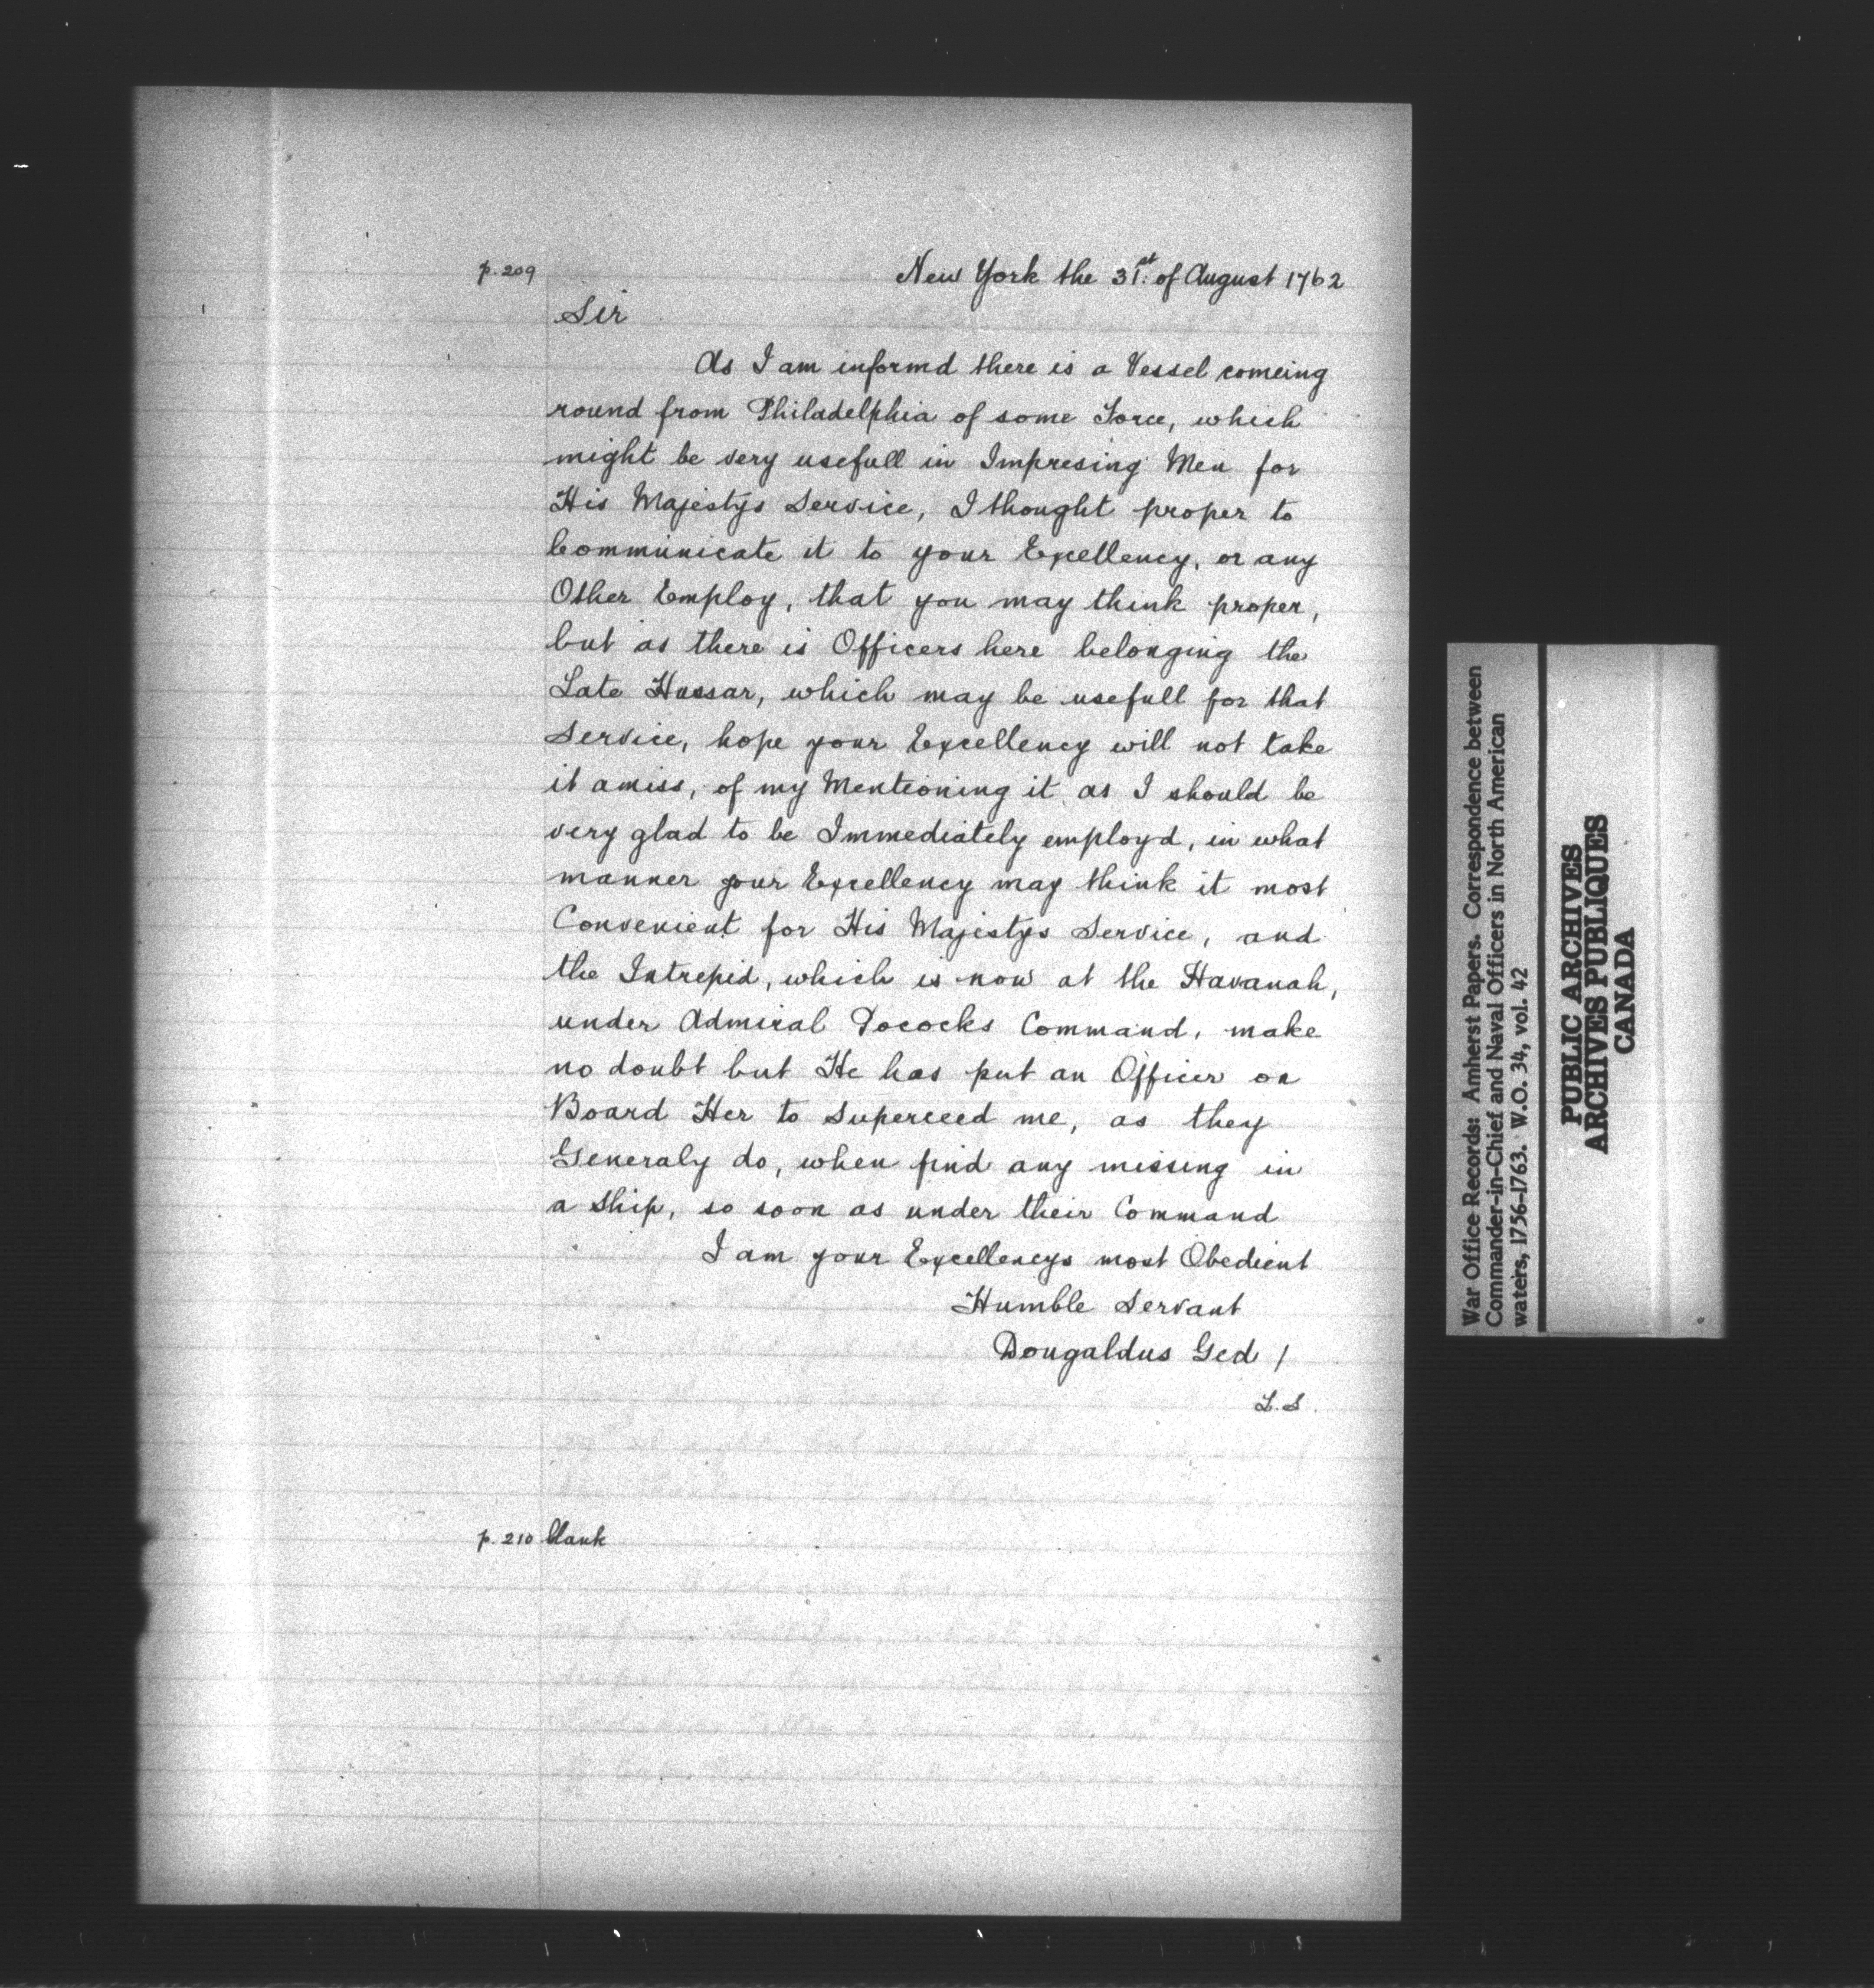 p. 209
New York the 31st. of August 1762
Sir
As I am informd there is a Vessel comeing
round from Philadelphia of some Force, which
might be very usefull in Impresing Men for
His Majestys Service, I thought proper to
Communicate it to your Excellency, or any
Other Employ, that you may think proper,
but as there is Officers here belonging the
Late Hussar, which may be usefull for that
Service, hope your Excellency will not take
it amiss, of my Mentioning it as I should be
very glad to be Immediately employd, in what
manner your Excellency may think it most
Convenient for His Majestys Service, and
the Intrepid, which is now at the Havanah,
under Admiral Pococks Command, make
no doubt but He has put an Officer on
Board Her to Superceed me, as they
Generaly do, when find any missing in
a Ship, so soon as under their Command
I am your Excellencys most Obedient
Humble Servant
Dougaldus Ged /
L.S.
p. 210 blank
War Office Records: Amherst Papers. Correspondence between
Commander-in-Chief and Naval Officers in North American
waters, 1756-1763. W.O. 34, vol. 42
PUBLIC ARCHIVES
ARCHIVES PUBLIQUES
CANADA